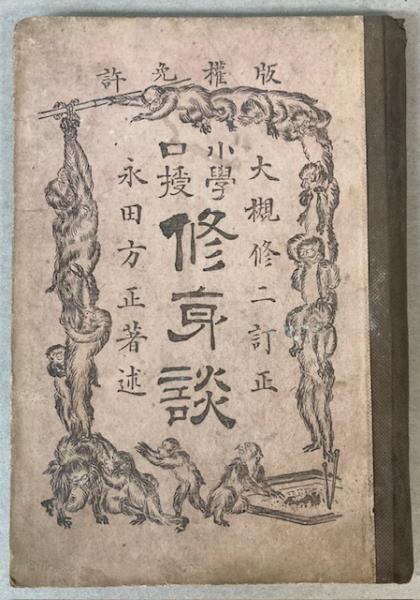 版權免許
大槻修二訂正
小學
口授
修身談
永田方正著述